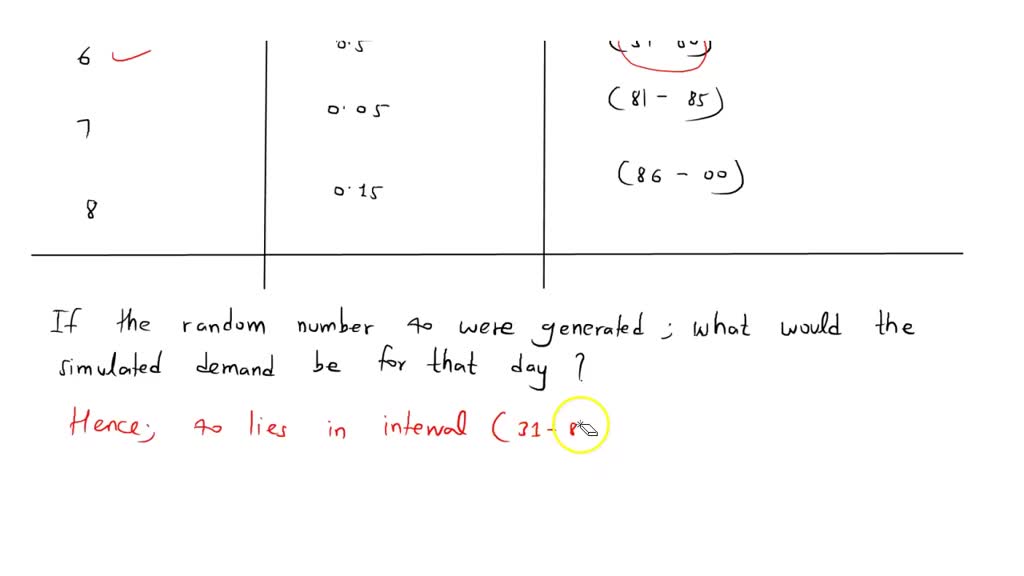 6 0.5 (31 - 80)
7 0.05 (81 - 85)
8 0.15 (86 - 00)
If the random number 40 were generated; what would the
simulated demand be for that day ?
Hence; 40 lies in interval (31 - 8